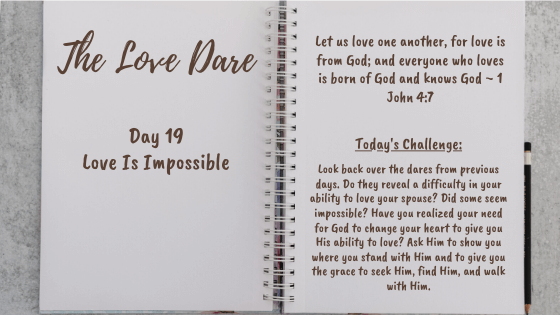 The Love Dare
Day 19
Love Is Impossible
Let us love one another, for love is
from God; and everyone who loves
is born of God and knows God ~ 1
John 4:7
Today's Challenge:
Look back over the dares from previous
days. Do they reveal a difficulty in your
ability to love your spouse? Did some seem
impossible? Have you realized your need
for God to change your heart to give you
His ability to love? Ask Him to show you
where you stand with Him and to give you
the grace to seek Him, find Him, and walk
with Him.